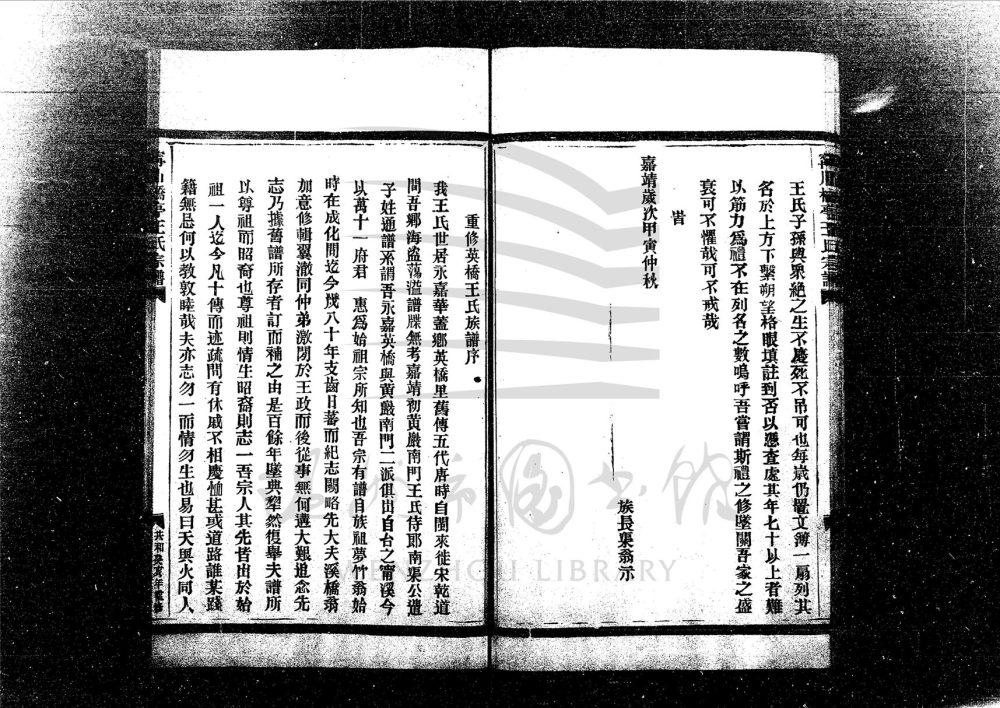 王氏子孫與眾絶之生不慶死不吊可也每歲仍置文簿一扇列其
名於上方下繫朔望格眼填註到否以憑查處其年七十以上者難
以筋力爲禮不在列名之數嗚呼吾嘗謂斯禮之修墜關吾家之盛
衰可不懼哉可不戒哉
旹
嘉靖歲次甲寅仲秋
族長渠翁示
重修英橋王氏族譜序
我王氏世居永嘉華蓋鄉英橋里舊傳五代唐時自閩來徙宋乾道
間吾鄉海盗蕩溢譜牒無考嘉靖初黄巖南門王氏侍郎南渠公遣
子姓通譜來謂吾永嘉英橋與黄巖南門二派俱出自台之甯溪今
以萬十一府君 惠爲始祖宗所知也吾宗有譜自族祖夢竹翁始
時在成化間迄今幾八十年支齒日蕃而紀志闕略先大夫溪橋翁
加意修輯翼澈同仲弟激閉於王政而後從事無何遘大艱追念先
志乃據舊譜所存者訂而補之由是百餘年墜典犂然復舉夫譜所
以尊祖而昭裔也尊祖則情生昭裔則志一吾宗人其先皆出於始
祖一人迄今凡十傳而迹疏間有休戚不相慶恤甚或道路誰某踐
籍無忌何以教敦睦哉夫亦志勿一而情勿生也易曰天與火同人
共和癸亥年重修
溫州市圖書館
WENZHOU LIBRARY